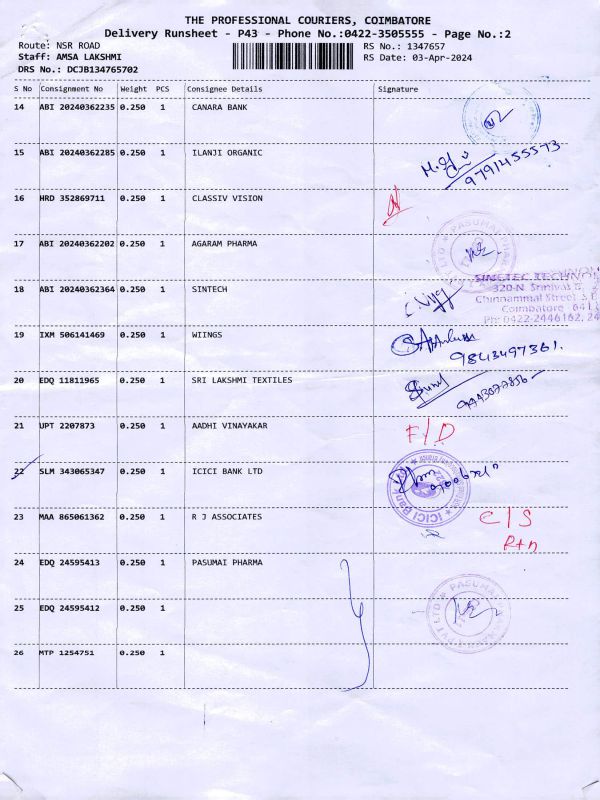 THE PROFESSIONAL COURIERS, COIMBATORE
Delivery Runsheet - P43 - Phone No.:0422-3505555 - Page No.:2
Route: NSR ROAD RS No.: 1347657
Staff: AMSA LAKSHMI RS Date: 03-Apr-2024
DRS No.: DCJB134765702
S No Consignment No Weight PCS Consignee Details Signature
14 ABI 20240362235 0.250 1 CANARA BANK
15 ABI 20240362285 0.250 1 ILANJI ORGANIC
9791455573
16 HRD 352869711 0.250 1 CLASSIV VISION
17 ABI 20240362202 0.250 1 AGARAM PHARMA
PASUMAI PHAR
18 ABI 20240362364 0.250 1 SINTECH
C. Vijay
320-N, Srinivas
Chinnammal Street, S B
Coimbatore 641
Ph: 0422-2446162, 24
19 IXM 506141469 0.250 1 WIINGS
9843497361.
20 EDQ 11811965 0.250 1 SRI LAKSHMI TEXTILES
21 UPT 2207873 0.250 1 AADHI VINAYAKAR
F/D
22 SLM 343065347 0.250 1 ICICI BANK LTD
ICICI Bank
23 MAA 865061362 0.250 1 R J ASSOCIATES
C/S
Rtn
24 EDQ 24595413 0.250 1 PASUMAI PHARMA
PASUMAI
PVT LTD
25 EDQ 24595412 0.250 1
26 MTP 1254751 0.250 1